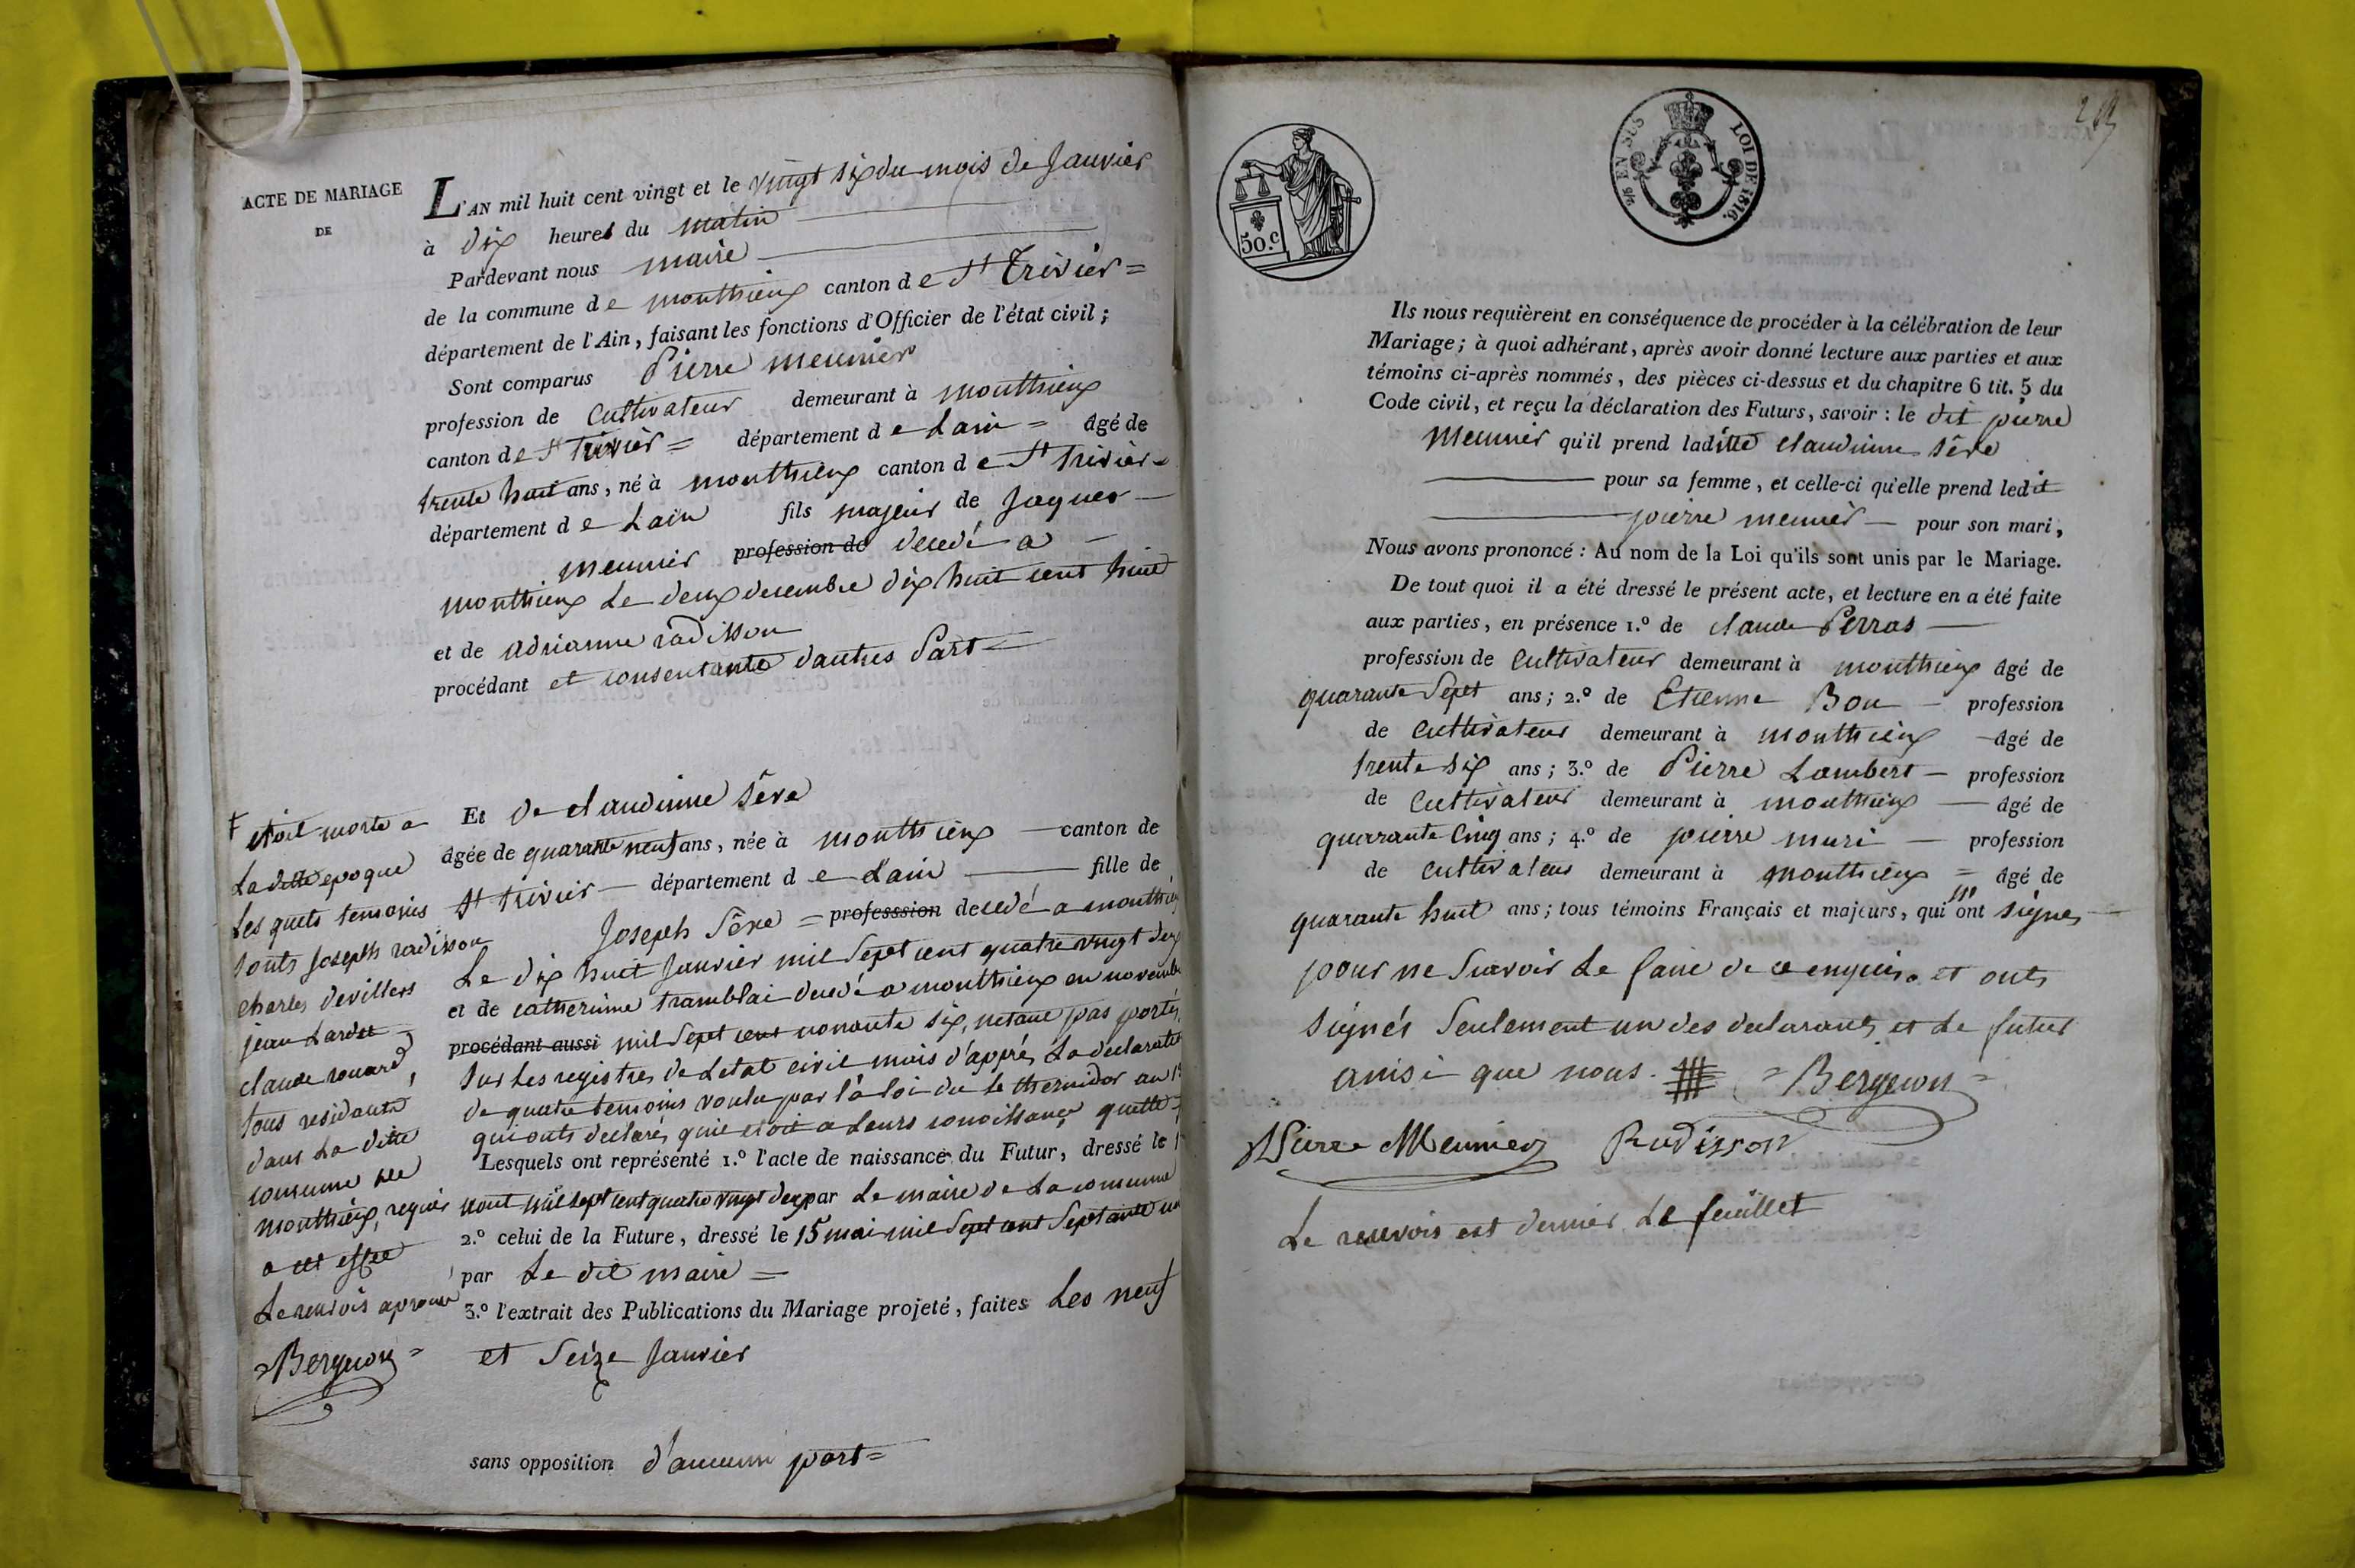 ACTE DE MARIAGE
DE
L'AN mil huit cent vingt et le vingt six du mois de Janvier
à dix heures du matin
Pardevant nous maire
de la commune de monthieux canton de St Trivier =
département de l'Ain, faisant les fonctions d'Officier de l'état civil ;
Sont comparus Pierre meunier
profession de Cultivateur demeurant à monthieux
canton de St trivier = département de Lain = âgé de
trente huit ans, né à monthieux canton de St trivier =
département de Lain fils majeur de Jaques
meunier profession de décédé a
monthieux Le deux decembre dix huit cent huit
et de adrianne radisson
procédant et consentante dautres Part =
Et de claudinne sêve
âgée de quarante neuf ans, née à monthieux canton de
St trivier département de Lain fille de
Joseph Sêve = professsion decedé a monthieux
Le dix huit Janvier mil Sept cent quatre vingt deux
et de catherinne tramblai decedé a monthieux en novembre
procédant aussi mil Sept cent nonante six, netant pas portés
sur Les registres de Letat civil mais d'apprés La declaration
de quatre temoins voulu par la loi du 1e thermidor an 1
qui onts declarés quil etoit a Leurs conoissance quelle
Lesquels ont représenté 1.º l'acte de naissance du Futur, dressé le 1
aout mil sept cent quatre vingt deux par Le maire de La comune
2.º celui de la Future, dressé le 15 mai mil Sept cent Septante un
par Le dit maire =
3.º l'extrait des Publications du Mariage projeté, faites Les neuf
et Seize Janvier
sans opposition d'aucune part =
etoit morte a
La ditte epoque
Les quels temoins
sonts Joseph radisson
Charles devillers
jean Lardet
claude rouard,
tous residants
dans La ditte
comune de
monthieux, requis
a cet effet
Le renvois aprouvé
= Bergeron =
50.c
EN SUS LOI DE 1816.
Ils nous requièrent en conséquence de procéder à la célébration de leur
Mariage ; à quoi adhérant, après avoir donné lecture aux parties et aux
témoins ci-après nommés, des pièces ci-dessus et du chapitre 6 tit. 5 du
Code civil, et reçu la déclaration des Futurs, savoir : le dit pierre
Meunier qu'il prend laditte claudinne sêve
pour sa femme, et celle-ci qu'elle prend ledit
pierre meunier pour son mari,
Nous avons prononcé : Au nom de la Loi qu'ils sont unis par le Mariage.
De tout quoi il a été dressé le présent acte, et lecture en a été faite
aux parties, en présence 1.º de claude Perras
profession de Cultivateur demeurant à monthieux âgé de
quarante Sept ans ; 2.º de Etienne Bon profession
de Cultivateur demeurant à monthieux âgé de
trente six ans ; 3.º de Pierre Lambert profession
de Cultivateur demeurant à monthieux âgé de
quarrante Cinq ans ; 4.º de pierre muri profession
de cultivateur demeurant à monthieux = âgé de
quarante huit ans ; tous témoins Français et majeurs, qui n'ont signés
pour ne Savoir Le faire de ce enquis. et onts
signés Seulement un des declarants et Le futur
ainsi que nous. = Bergeron =
Pierre Meunier Radisson
Le renvois est dernier Le feuillet